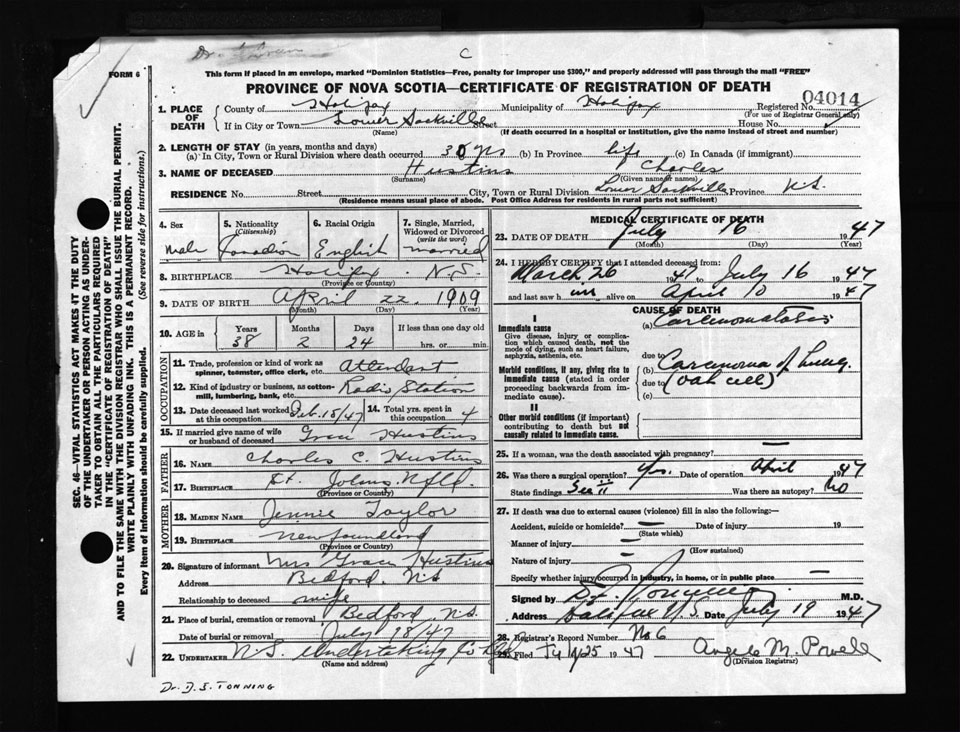 Dr.
C
FORM 6
This form if placed in an envelope, marked "Dominion Statistics—Free, penalty for improper use $300," and properly addressed will pass through the mail "FREE"
PROVINCE OF NOVA SCOTIA—CERTIFICATE OF REGISTRATION OF DEATH
04014
1. PLACE OF DEATH
County of Halifax Municipality of Halifax Registered No.
(For use of Registrar General only)
If in City or Town Lower Sackville Street House No.
(Name) (If death occurred in a hospital or institution, give the name instead of street and number)
2. LENGTH OF STAY (in years, months and days)
(a) In City, Town or Rural Division where death occurred 30 yrs (b) In Province life (c) In Canada (if immigrant)
3. NAME OF DECEASED Hustins Charles
(Surname) (Given name or names)
RESIDENCE No. Street City, Town or Rural Division Lower Sackville Province N.S.
(Residence means usual place of abode. Post Office Address for residents in rural parts not sufficient)
4. Sex
male
5. Nationality
(Citizenship)
Canadian
6. Racial Origin
English
7. Single, Married, Widowed or Divorced
(write the word)
married
8. BIRTHPLACE Halifax N.S.
(Province or Country)
9. DATE OF BIRTH April 22 1909
(Month) (Day) (Year)
10. AGE in
Years Months Days If less than one day old
38 2 24 hrs. or min.
OCCUPATION
11. Trade, profession or kind of work as spinner, teamster, office clerk, etc. Attendant
12. Kind of industry or business, as cotton-mill, lumbering, bank, etc. Radio Station
13. Date deceased last worked at this occupation Feb. 18/47
14. Total yrs. spent in this occupation 4
15. If married give name of wife or husband of deceased Grace Hustins
FATHER
16. NAME Charles C. Hustins
17. BIRTHPLACE St. Johns Nfld.
(Province or Country)
MOTHER
18. MAIDEN NAME Jennie Taylor
19. BIRTHPLACE Newfoundland
(Province or Country)
20. Signature of informant Mrs Grace Hustins
Address Bedford. N.S
Relationship to deceased wife
21. Place of burial, cremation or removal Bedford, N.S.
Date of burial or removal July 18/47
22. UNDERTAKER N.S. Undertaking Co Ltd
(Name and address)
Dr. D. S. TONNING
MEDICAL CERTIFICATE OF DEATH
23. DATE OF DEATH July 16 1947
(Month) (Day) (Year)
24. I HEREBY CERTIFY that I attended deceased from:
March 26 1947 to July 16 1947
and last saw him alive on April 10 1947
CAUSE OF DEATH
I
Immediate cause
Give disease, injury or complication which caused death, not the mode of dying, such as heart failure, asphyxia, asthenia, etc.
(a) Carcinomatosis
due to
Morbid conditions, if any, giving rise to immediate cause (stated in order proceeding backwards from immediate cause).
(b) Carcinoma of Lung.
due to (oat cell)
(c)
II
Other morbid conditions (if important) contributing to death but not causally related to immediate cause.
25. If a woman, was the death associated with pregnancy? —
26. Was there a surgical operation? Yes. Date of operation April 1947
State findings See II Was there an autopsy? No
27. If death was due to external causes (violence) fill in also the following:—
Accident, suicide or homicide? — Date of injury 19
(State which)
Manner of injury —
(How sustained)
Nature of injury —
Specify whether injury occurred in industry, in home, or in public place —
Signed by M.D.
Address Halifax N.S. Date July 19 1947
28. Registrar's Record Number No 6
29. Filed July 25 1947 Angela M. Powell
(Division Registrar)
SEC. 46—VITAL STATISTICS ACT MAKES IT THE DUTY
OF THE UNDERTAKER OR PERSON ACTING AS UNDER-
TAKER TO OBTAIN ALL THE PARTICULARS REQUIRED
IN THE "CERTIFICATE OF REGISTRATION OF DEATH"
AND TO FILE THE SAME WITH THE DIVISION REGISTRAR WHO SHALL ISSUE THE BURIAL PERMIT.
WRITE PLAINLY WITH UNFADING INK. THIS IS A PERMANENT RECORD.
Every item of Information should be carefully supplied. (See reverse side for instructions.)